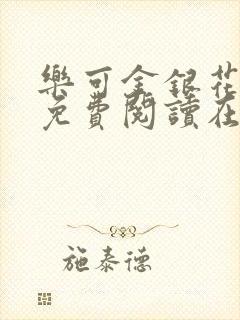 樂可金銀花
免費閱讀在
施泰德